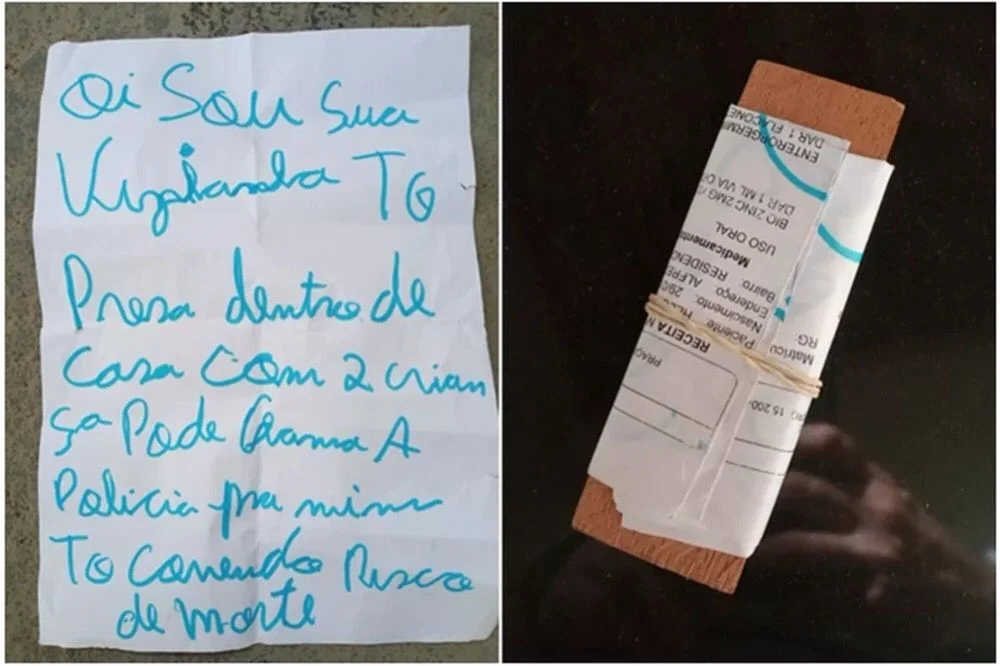 Oi Sou Sua
TO
Presa dentro de
Casa Com 2 crian
ça Pode Chama A
Policia pra mim
TO Correndo Risco
de morte
RECEITA M
Paciente:
Nascimento: 29/0
Endereço: ALFRE
Bairro: RESIDENC
Medicamento
USO ORAL
BIO ZINC 2MG /
DAR 1 ML VIA O
ENTERORGERMI
DAR 1 FLACONE
15 200-
Matrícu
RG: